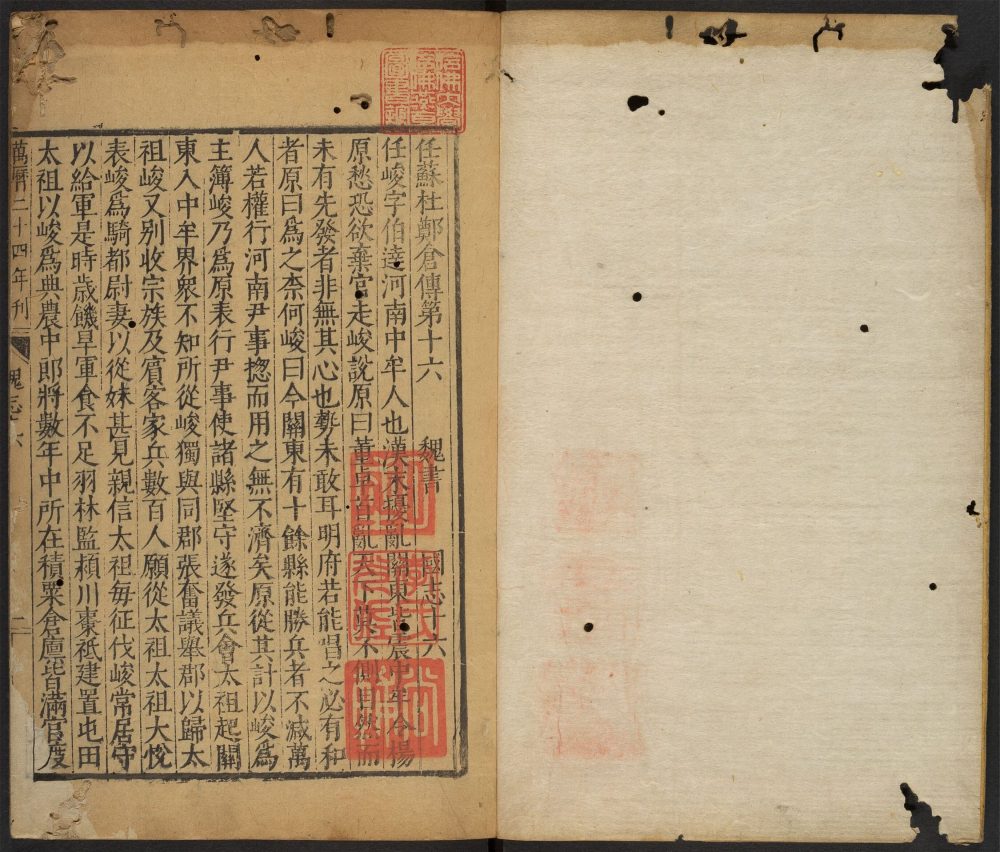 任蘇杜鄭倉傳第十六 魏書 國志十六
任峻字伯達河南中牟人也漢末擾亂關東皆震中牟令楊
原愁恐欲棄官走峻說原曰董卓首亂天下莫不側目然而
未有先發者非無其心也勢未敢耳明府若能唱之必有和
者原曰爲之柰何峻曰今關東有十餘縣能勝兵者不減萬
人若權行河南尹事揔而用之無不濟矣原從其計以峻爲
主簿峻乃爲原表行尹事使諸縣堅守遂發兵會太祖起關
東入中牟界衆不知所從峻獨與同郡張奮議舉郡以歸太
祖峻又別收宗族及賓客家兵數百人願從太祖太祖大悅
表峻爲騎都尉妻以從妹甚見親信太祖每征伐峻常居守
以給軍是時歲饑旱軍食不足羽林監潁川棗祗建置屯田
太祖以峻爲典農中郎將數年中所在積粟倉廩皆滿官度
萬曆二十四年刊 魏志 六 一